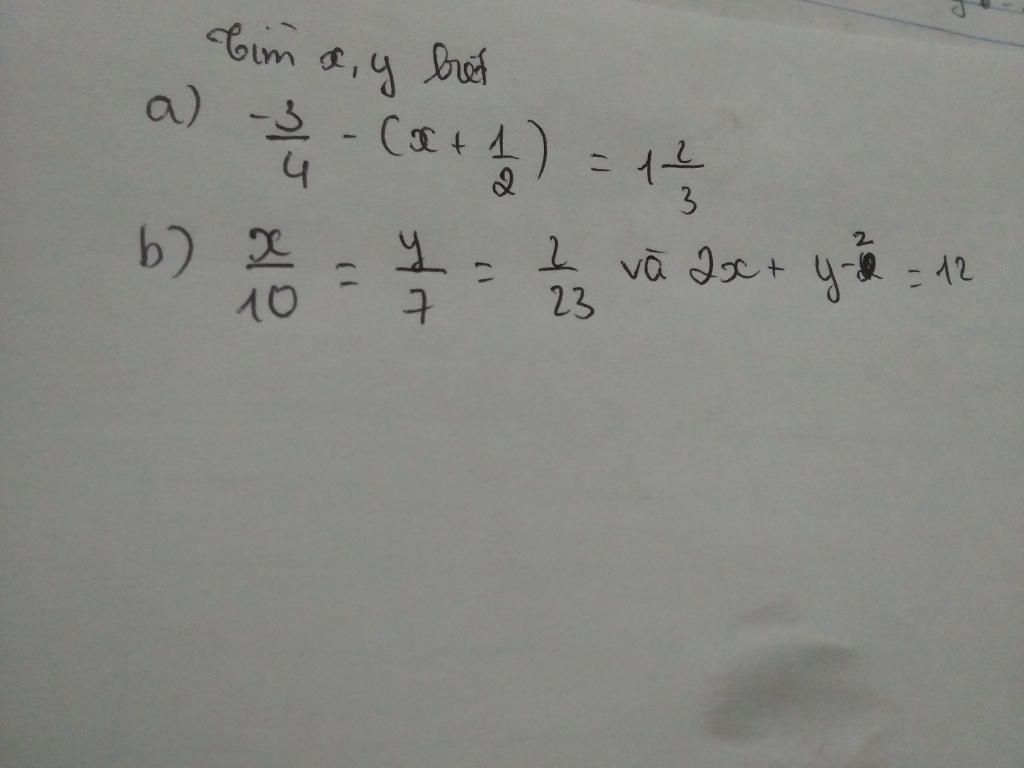 Tìm x, y biết
a) -3/4 - (x + 1/2) = 1 2/3
b) x/10 = y/7 = 2/23 và 2x + y - 2 = 12